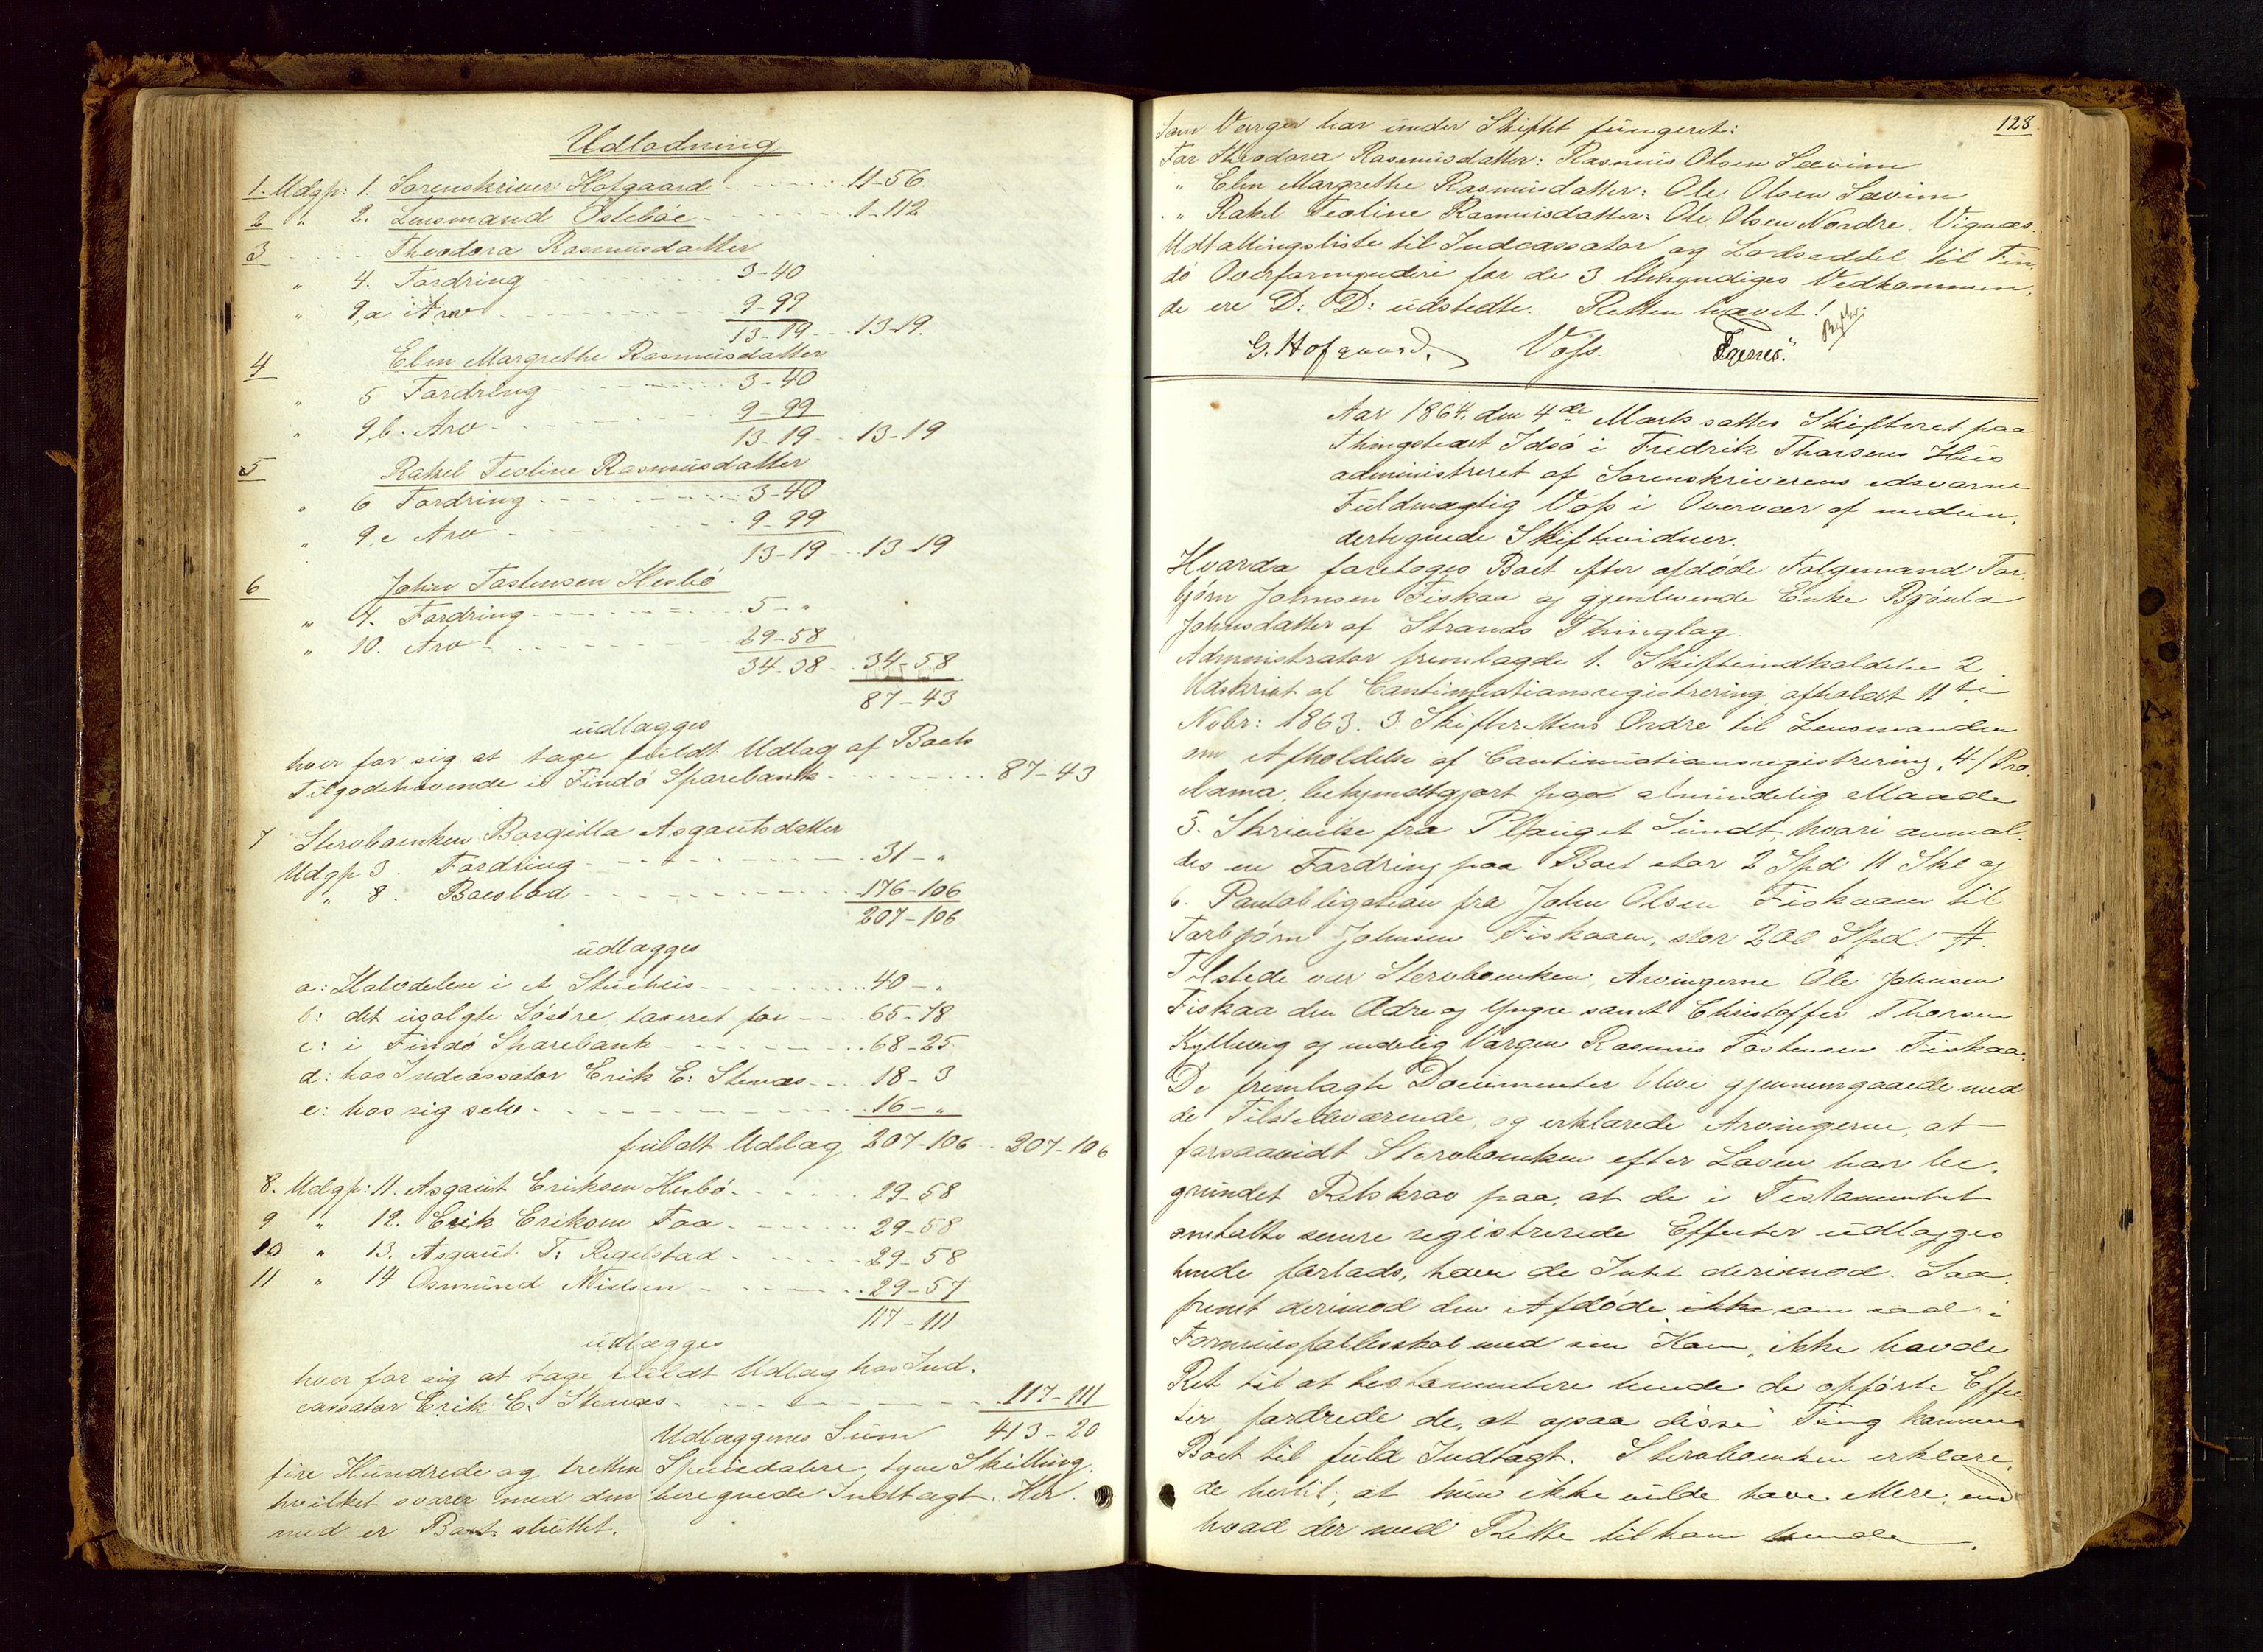 Udlodning
1. Udgp: 1. Sorenskriver Hofgaard 11-56
2 " 2. Lensmand Østebøe 1-112
3 Theodora Rasmusdatter
" 4. Fordring 3-40
" 9,a Arv 9-99
13-19 13-19.
4 Elen Margrethe Rasmusdatter
" 5 Fordring 3-40
" 9,b. Arv 9-99
13-19 13-19
5 Rakel Teoline Rasmusdatter
" 6 Fordring 3-40
" 9,c Arv 9-99
13-19 13-19
6 John Tostensen Hesbö
" 7. Fordring 5-"
" 10. Arv 29-58
34-58 34-58
87-43
udlægges
hver for sig at tage fuldt Udlag af Boets
Tilgodehavende i Findö Sparebank 87-43
7 Stervboenken Borgilla Asgautsdatter
Udgp 3. Fordring 31-"
" 8. Boeslod 176-106
207-106
udlægges
a: Halvdelen i et Stuehuus 40-"
b: det usolgte Løsøre taxeret for 65-78
c: i Findö Sparebank 68-25
d: hos Indcassator Erik E: Stenæs 18-3
e: hos sig selv 16-"
fuldt Udlag 207-106 207-106
8. Udgp: 11. Asgaut Eriksen Hesbö 29-58
9 " 12. Erik Eriksen Faa 29-58
10 " 13. Asgaut T: Regelstad 29-58
11 " 14 Osmund Nielsen 29-57
117-111
udlægges
hver for sig at tage fuldt Udlag hos Ind-
cassator Erik E. Stenæs 117-111
Udlæggenes Sum 413-20
fire Hundrede og tretten Speciedalere, tyve Skilling
hvilket svarer med den beregnede Indtægt. Her
med er Boet sluttet.
128
Som Værger har under Skiftet fungeret:
For Theodora Rasmusdatter: Rasmus Olsen Sævim
" Elen Margrethe Rasmusdatter: Ole Olsen Sævim
" Rakel Teoline Rasmusdatter: Ole Olsen Nordre Vignæs.
Udtallingsliste til Indcassator og Lodseddel til Fin-
dö Overformynderi for de 3 Umyndiges Vedkommen-
de ere D: D: udstedte. Retten hævet!
G. Hofgaard. Voss.
Aar 1864 den 4de Marts sattes Skifteret paa
Thingstedet Idsö i Fredrik Thorsens Huus
administreret af Sorenskriverens edsvorne
Fuldmægtig Voss i Overvær af nedenun-
dertegnede Skiftevidner.
Hvorda foretoges Boet efter afdøde Følgemand Tor-
bjørn Johnsen Fiskaa og gjenlevende Enke Bjönla
Johnsdatter af Strands Thinglag.
Administrator fremlagde 1. Skifteindkaldelse 2
Udskrivt af Continuationsregistrering afholdt 11te
Novbr: 1863. 3 Skifterettens Ordre til Lensmanden
om Afholdelse af Continuationsregistrering, 4/ Pro-
clama, bekjendtgjort paa almindelig Maade
5. Skrivelse fra Sundt, hvori anmel-
des en Fordring paa Boet stor 2 Spd 11 Skl og
6. Pantobligation fra John Olsen Fiskaaen til
Torbjørn Johnsen Fiskaaen, stor 200 Spd.
Tilstede var Stervboenken, Arvingerne Ole Johnsen
Fiskaa den Ældre og Yngre samt Christoffer Thorsen
Kyllevig og endelig Værgen Rasmus Tostensen Fiskaa.
De fremlagte Documenter bleve gjennemgaaede med
de Tilstedeværende, og erklærede Arvingerne, at
forsaavidt Stervboenken efter Loven har be-
grundet Retskrav paa, at de i Testamentet
omtalte senere registrerede Effecter udlægges
hende forlods, have de Intet derimod. Saa-
fremt derimod den Afdøde ikke som sad i
Formuesfællesskab med sin Kone, ikke havde
Ret til at testamentere hende de opførte Effec-
ter fordrede de, at ogsaa disse Ting kommer
Boet til fuld Indtægt. Stervboenken erklære-
de hertil, at hun ikke vilde have Mere, end
hvad der med Rette tilkom hende.